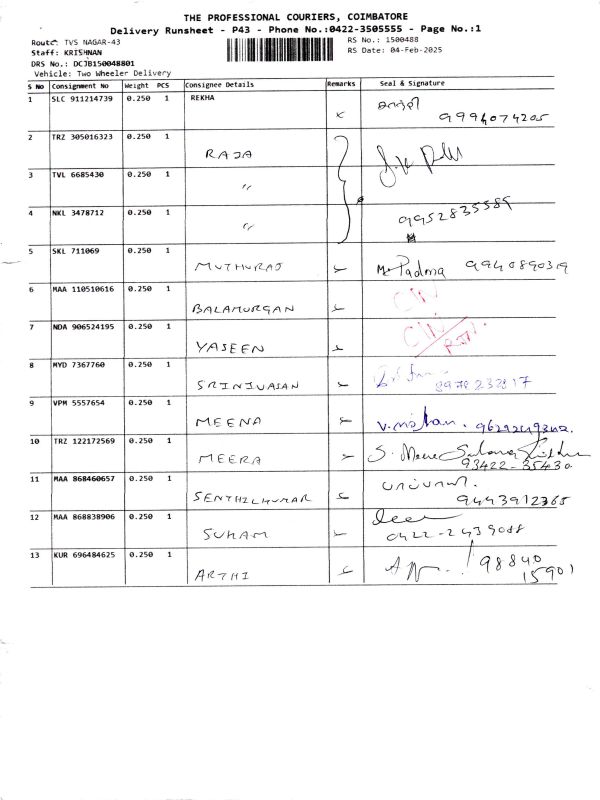 THE PROFESSIONAL COURIERS, COIMBATORE
Delivery Runsheet - P43 - Phone No.:0422-3505555 - Page No.:1
Route: TVS NAGAR-43
RS No.: 1500488
Staff: KRISHNAN
RS Date: 04-Feb-2025
DRS No.: DCJB150048801
Vehicle: Two Wheeler Delivery
S No Consignment No Weight PCS Consignee Details Remarks Seal & Signature
1 SLC 911214739 0.250 1 REKHA
9994074205
2 TRZ 305016323 0.250 1 RAJA
3 TVL 6685430 0.250 1 〃
4 NKL 3478712 0.250 1 〃 9952835585
5 SKL 711069 0.250 1 MUTHURAJ Padma 9940890319
6 MAA 110510616 0.250 1 BALAMURGAN
7 NDA 906524195 0.250 1 YASEEN
8 MYD 7367760 0.250 1 SRINIVASAN
9 VPM 5557654 0.250 1 MEENA V. mohan.
10 TRZ 122172569 0.250 1 MEERA S. Meera
93422-35430
11 MAA 868460657 0.250 1 SENTHILKUMAR
9443912365
12 MAA 868838906 0.250 1 SUHAM
0422-2439088
13 KUR 696484625 0.250 1 ARTHI 98840
15901